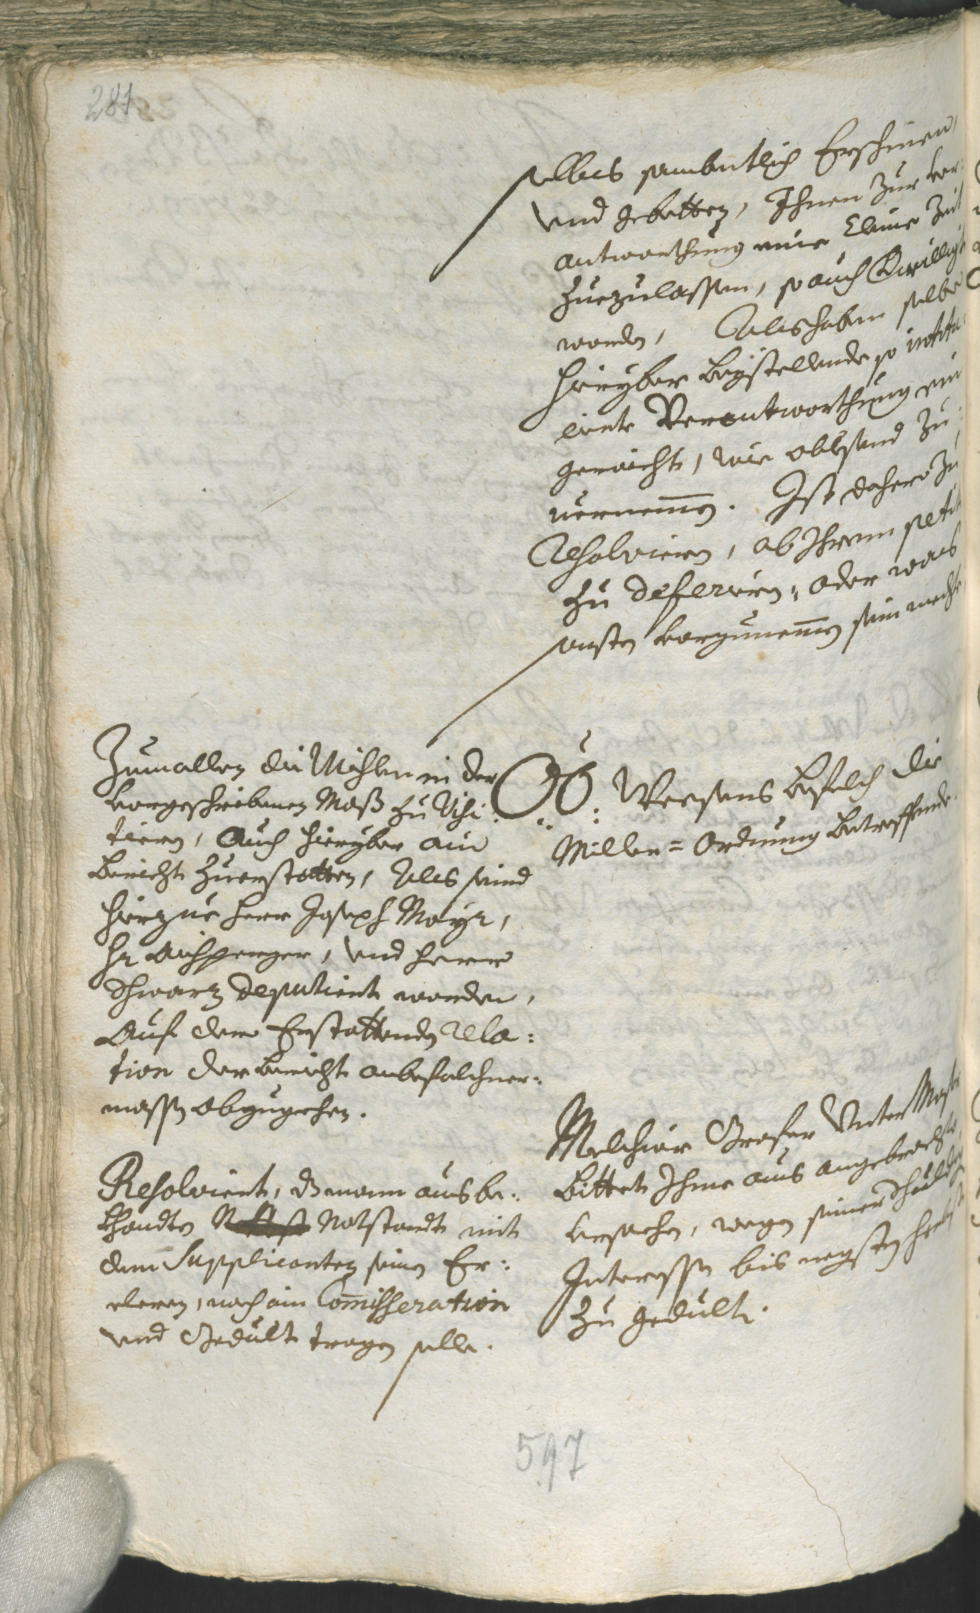 281
selbes sambentlich Erschinen,
Vnd gebetten, Ihnen zur ver¬
antworthung eine kleine Zeit
zuezulassen, so auch bewilligt
worden, Alls haben selbe
hieryber beystellende so intitu
lierte Verantworthung ein
gereicht, wie allsand zu
vernemmen. Ist dahero zu
Resolvieren, ob Ihrem petito
zu deferiren, oder was
ansten vorzunemmen sein mechte
Zumallen die Mihlen in der
vorgeschribenen Maß zu Visi:
tiern, Auch hieryber ein
Bericht zuerstatten, Als seind
hierzue herr Joseph Mayr,
Hr Aichperger, Vnd herr
Schwarz deputiert worden,
Auf dero Erstattende rela:
tion der Bericht anbefolchner¬
massen abzugehen.
Ob: Wesens befelch die
Miller=Ordnung betreffende.
Resolviert, dz mann aus be:
khandten Notstandt mit
dem Supplicanten seinen Er:
clern, noch ein Commisseration
vnd Gedult tragen solle.
Melchior Graser Vnter
Bittet Ihme aus angebrachten
vrsachen, wegen seiner schuldigen
Interesse bis negsten
zu gedulten.
597